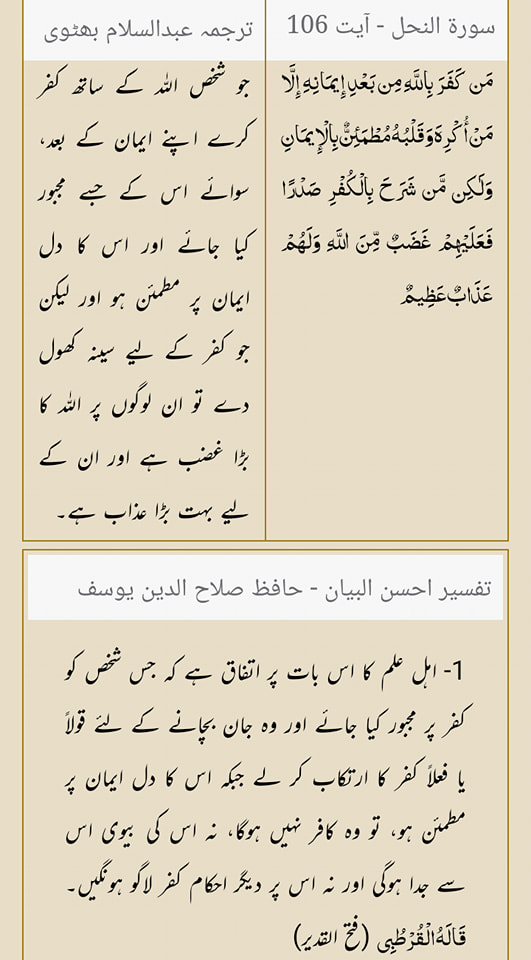 سورة النحل - آیت 106
مَن كَفَرَ بِاللَّهِ مِن بَعْدِ إِيمَانِهِ إِلَّا
مَنْ أُكْرِهَ وَقَلْبُهُ مُطْمَئِنٌّ بِالْإِيمَانِ
وَلَٰكِن مَّن شَرَحَ بِالْكُفْرِ صَدْرًا
فَعَلَيْهِمْ غَضَبٌ مِّنَ اللَّهِ وَلَهُمْ
عَذَابٌ عَظِيمٌ
ترجمہ عبدالسلام بھٹوی
جو شخص اللہ کے ساتھ کفر
کرے اپنے ایمان کے بعد،
سوائے اس کے جسے مجبور
کیا جائے اور اس کا دل
ایمان پر مطمئن ہو اور لیکن
جو کفر کے لیے سینہ کھول
دے تو ان لوگوں پر اللہ کا
بڑا غضب ہے اور ان کے
لیے بہت بڑا عذاب ہے۔
تفسیر احسن البیان - حافظ صلاح الدین یوسف
1- اہل علم کا اس بات پر اتفاق ہے کہ جس شخص کو
کفر پر مجبور کیا جائے اور وہ جان بچانے کے لئے قولاً
یا فعلاً کفر کا ارتکاب کر لے جبکہ اس کا دل ایمان پر
مطمئن ہو، تو وہ کافر نہیں ہوگا، نہ اس کی بیوی اس
سے جدا ہوگی اور نہ اس پر دیگر احکام کفر لاگو ہونگیں۔
قَالَهُ الْقُرْطُبِی (فتح القدیر)